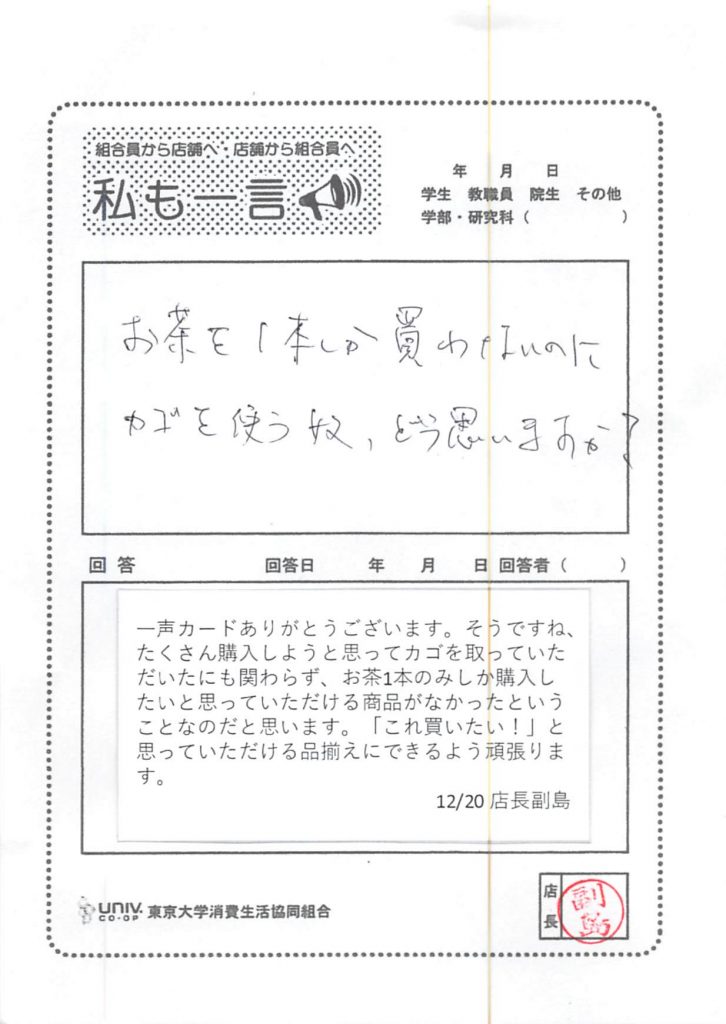 組合員から店舗へ 店舗から組合員へ
私も一言
年 月 日
学生 教職員 院生 その他
学部・研究科（ ）
お茶を1本しか買わないのに
カゴを使う奴、どう思いますか?
回答 回答日 年 月 日 回答者（ ）
一声カードありがとうございます。そうですね、
たくさん購入しようと思ってカゴを取っていた
だいたにも関わらず、お茶1本のみしか購入し
たいと思っていただける商品がなかったという
ことなのだと思います。「これ買いたい！」と
思っていただける品揃えにできるよう頑張りま
す。
12/20 店長副島
UNIV. CO-OP 東京大学消費生活協同組合
店長
副島